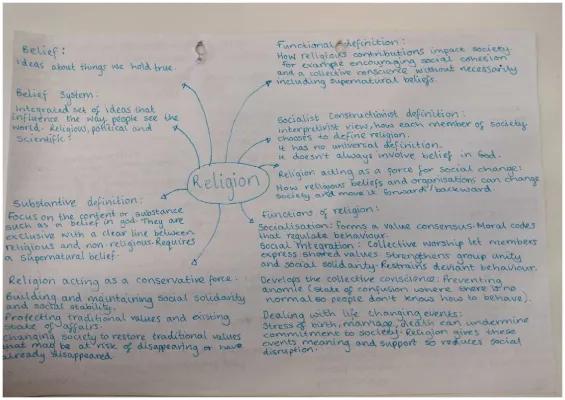 Belief:
Ideas about things we hold true.
Belief System:
Integrated set of ideas that
influence the way people see the
world. Religious, political and
Scientific!
Substantive definition:
Focus on the content or substance
such as a belief in god. They are
exclusive with a clear line between
religious and non religious. Requires
a supernatural belief.
Religion acting as a conservative force.
Building and maintaining social solidarity
and social stability.
Protecting traditional values and existing
state of affairs.
Changing society to restore traditional values
that may be at risk of disappearing or have
already disappeared.
Religion
Functional definition:
How religious contributions impact society
for example encouraging social cohesion
and a collective conscience without necessarily
including supernatural beliefs.
Socialist Constructionist definition:
interpretivist view, how each member of society
chooses to define religion.
it has no universal definition.
it doesn't always involve belief in God.
Religion acting as a force for social change:
How religious beliefs and organisations can change
society and move it forward/backward.
Functions of religion:
Socialisation: Forms a value consensus. Moral codes
that regulate behaviour.
Social integration: Collective worship let members
express shared values strengthens group unity
and social solidarity. Restrains deviant behaviour.
Develops the collective conscience: Preventing
anomie (state of confusion where there is no
normal so people don't know how to behave).
Dealing with life changing events:
Stress of birth, marriage, death can undermine
commitment to society. Religion gives these
events meaning and support so reduces social
disruption.